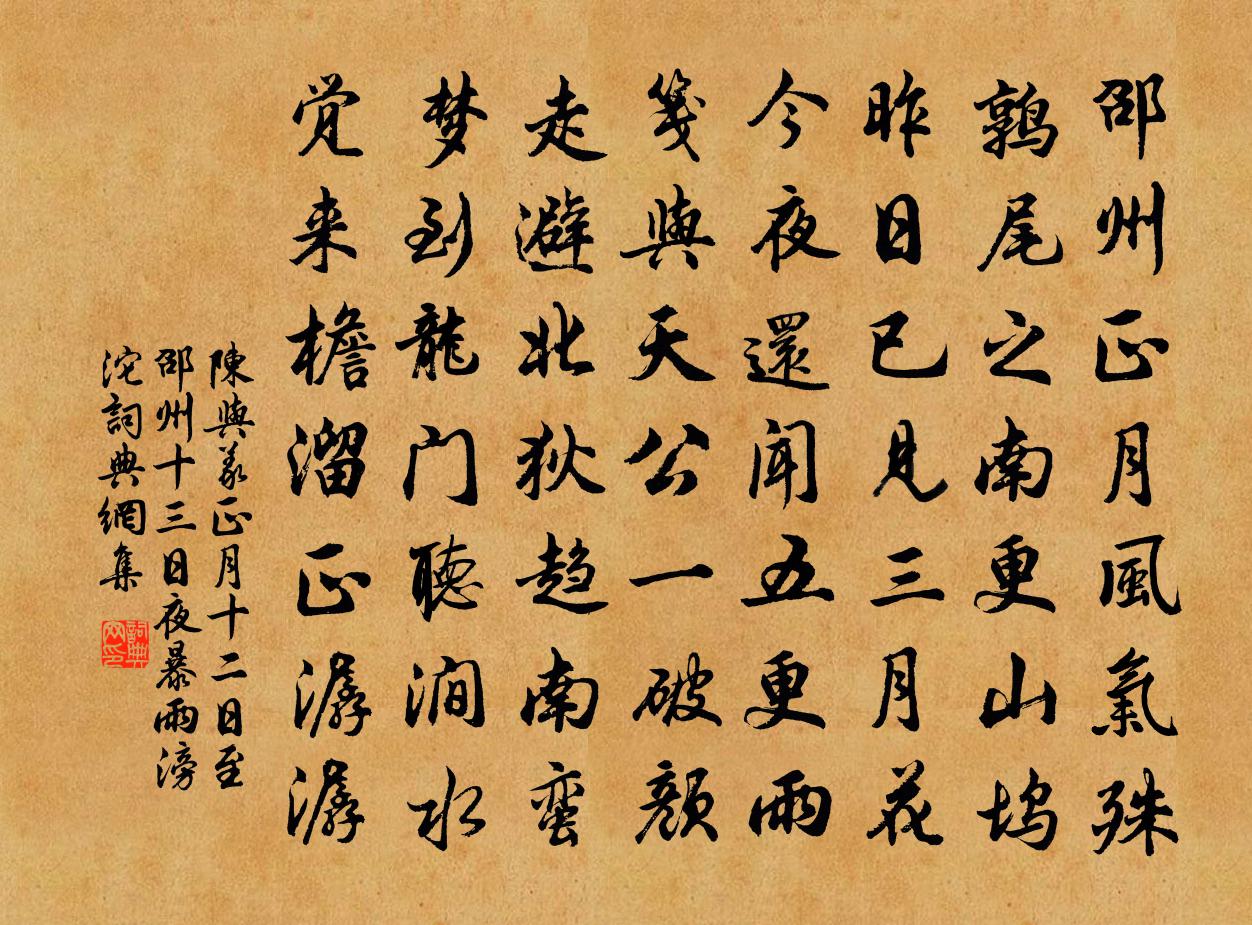 邵州正月風氣殊
鶉尾之南更山塢
昨日已見三月花
今夜還聞五更雨
箋與天公一破顏
走避北狄趨南蛮
梦到龍门聽澗水
觉来檐溜正潺潺
陳與義正月十二日至
邵州十三日夜暴雨滂
沱詞典網集
詞典网印